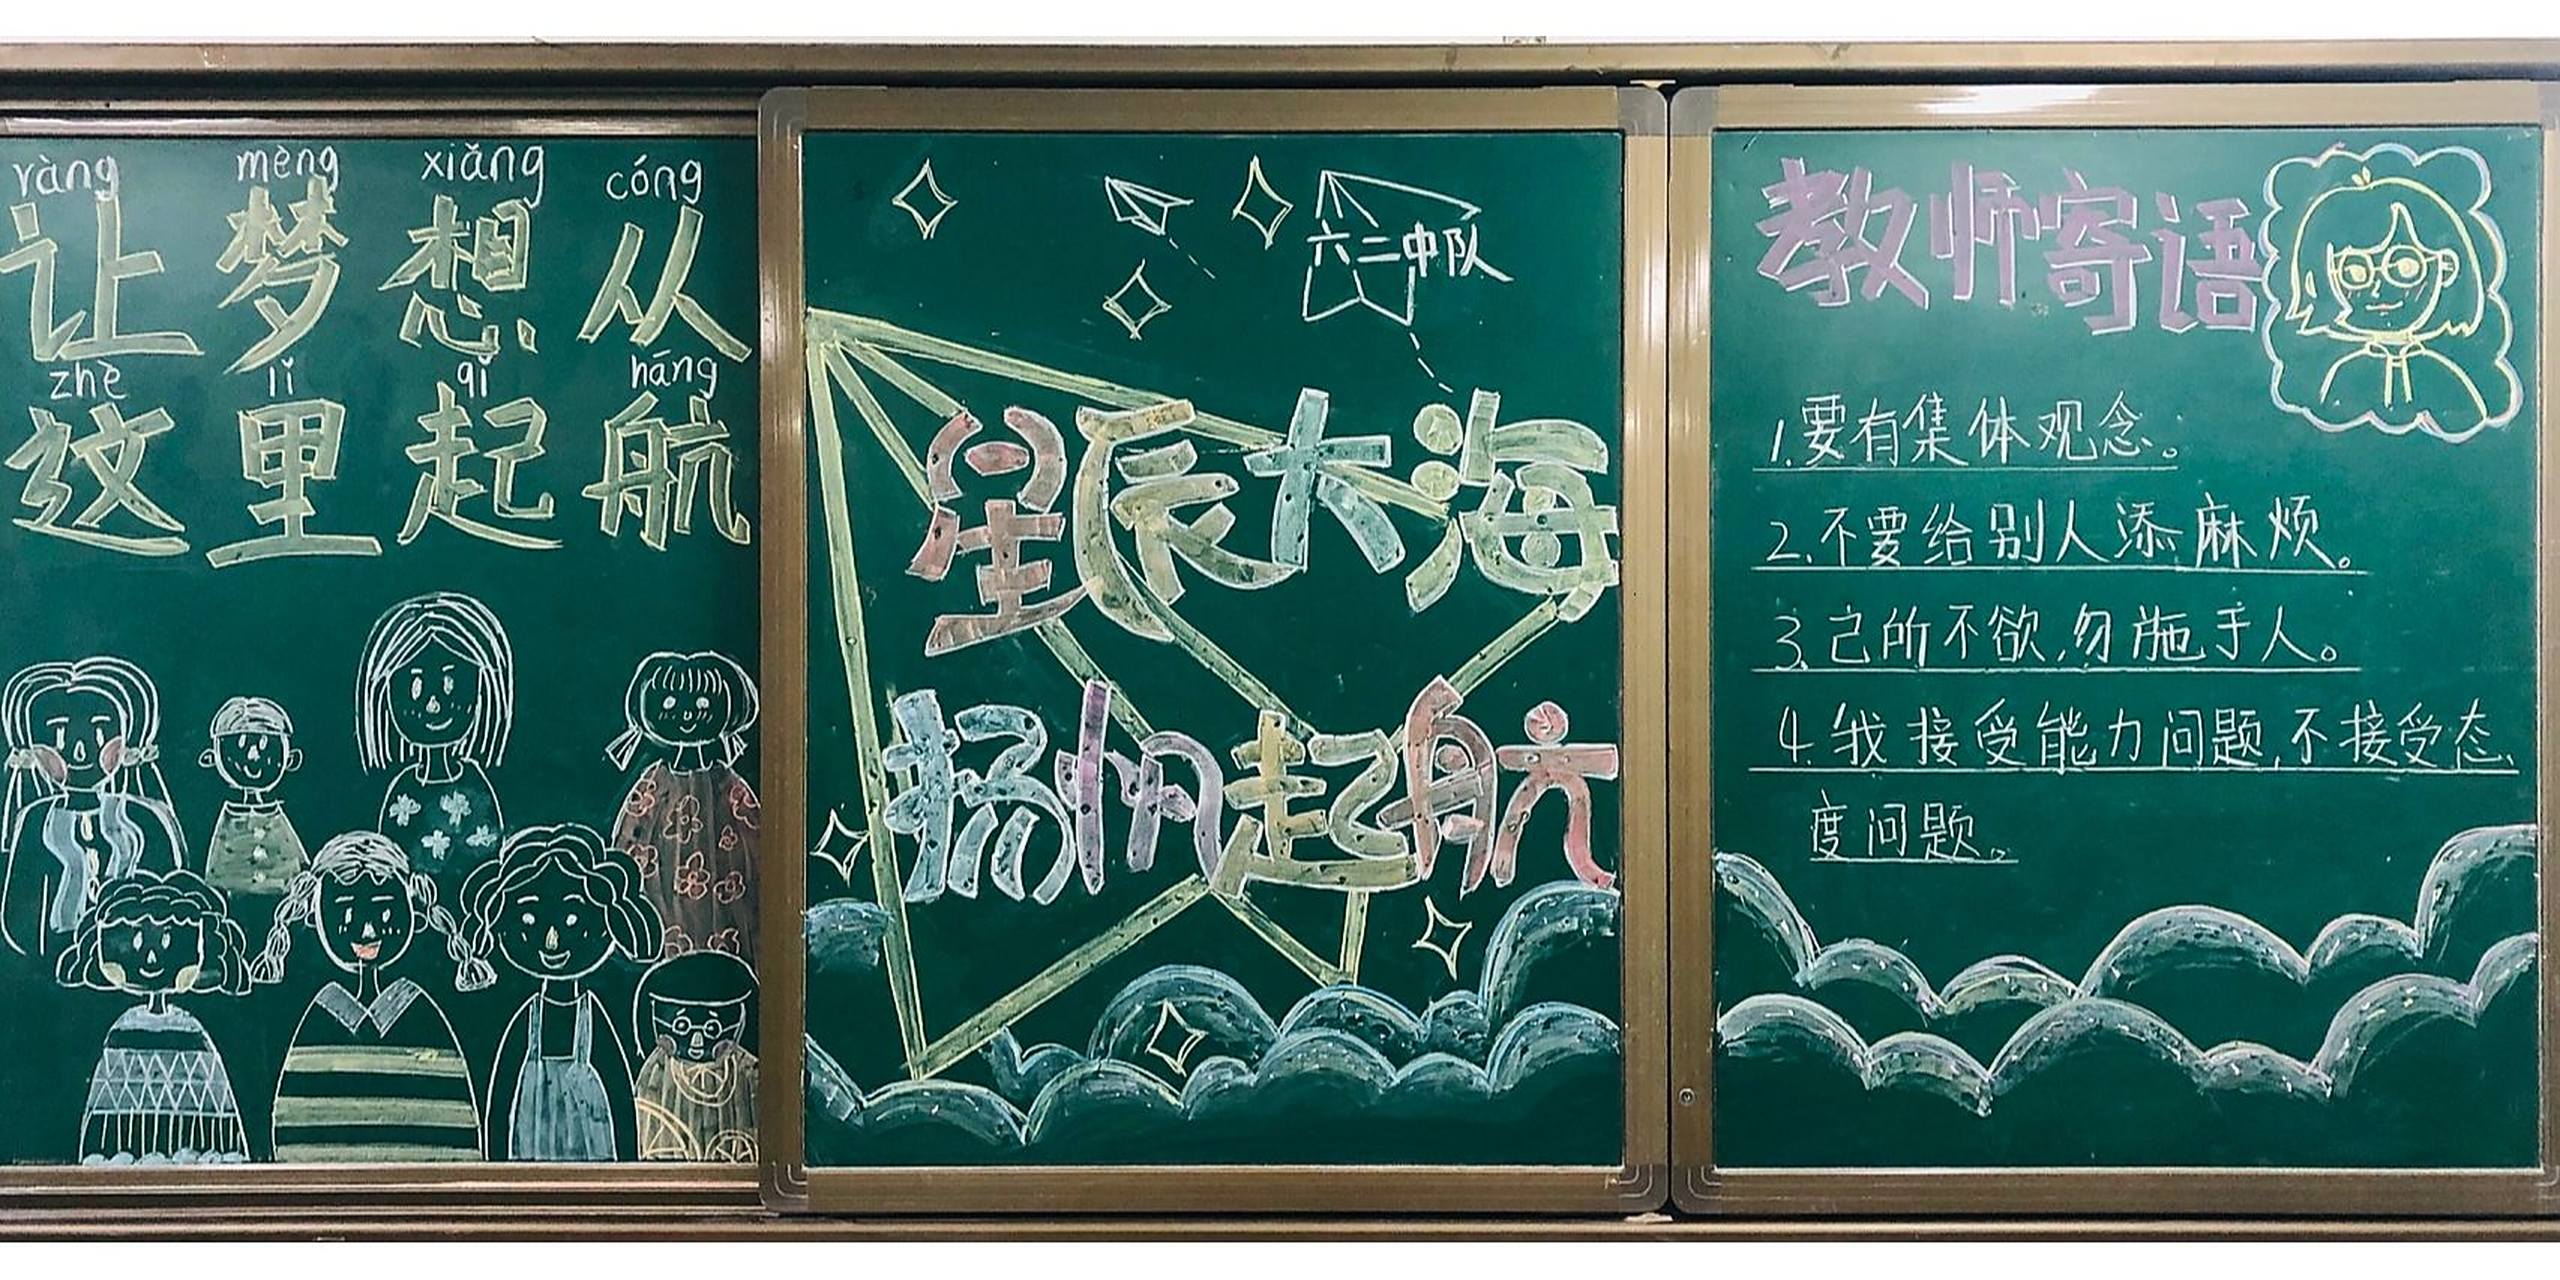 ràng mèng xiǎng cóng
让梦想从
zhè lǐ qǐ háng
这里起航
六二中队
星辰大海
扬帆起航
教师寄语
1.要有集体观念。
2.不要给别人添麻烦。
3.己所不欲,勿施于人。
4.我接受能力问题,不接受态
度问题。